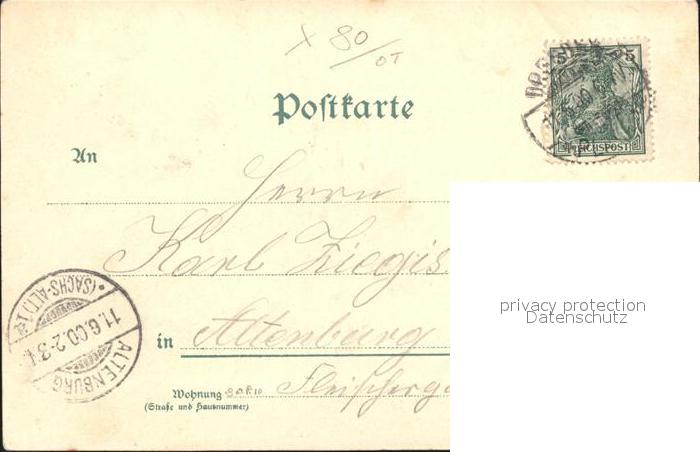 x 80/OT
Postkarte
5 5
REICHSPOST
DRESDEN
An
Herrn
Karl Ziegis
in Altenburg
Wohnung
(Straße und Hausnummer)
ALTENBURG
(SACHS-ALT.) 1
11.6.00.2-3
privacy protection
Datenschutz